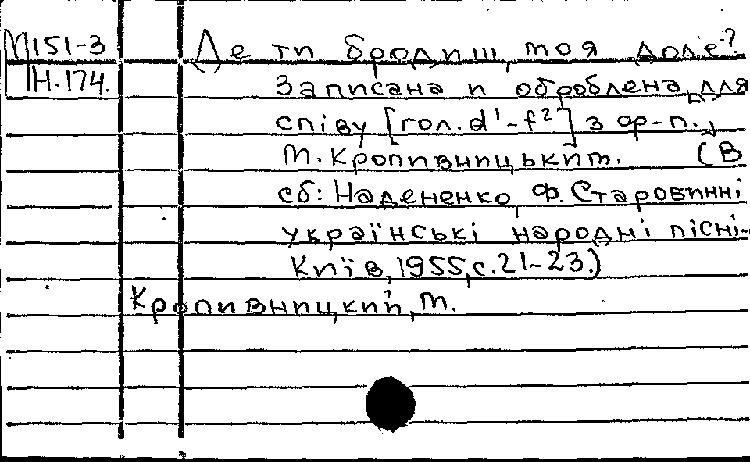 М151-3
Н.174.
Де ти бродиш, моя доле?
Записана й оброблена для
співу [гол. d¹-f²] з ф-п.,
М. Кропивницьким. (В
сб: Надененко, Ф. Старовинні
українські народні пісні.-
Київ, 1955, с.21-23.)
Кропивницкий, М.